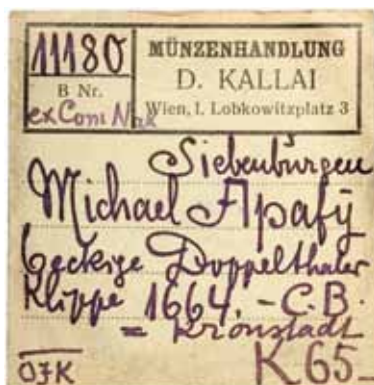 11180
B Nr.
ex Com Nat
MÜNZENHANDLUNG
D. KALLAI
Wien, I. Lobkowitzplatz 3
Siebenbürgen
Michael Apafÿ
6eckige Doppelthaler
Klippe 1664. - C.B.
= Kronstadt
K 65_